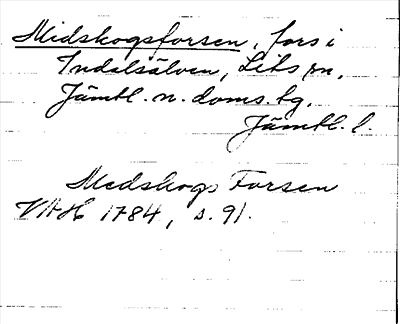 Midskogsforsen, fors i
Indalsälven, Lits sn,
Jämtl. n. doms. tg,
Jämtl. l.
Medskogs Forsen
VAH 1784, s. 91.